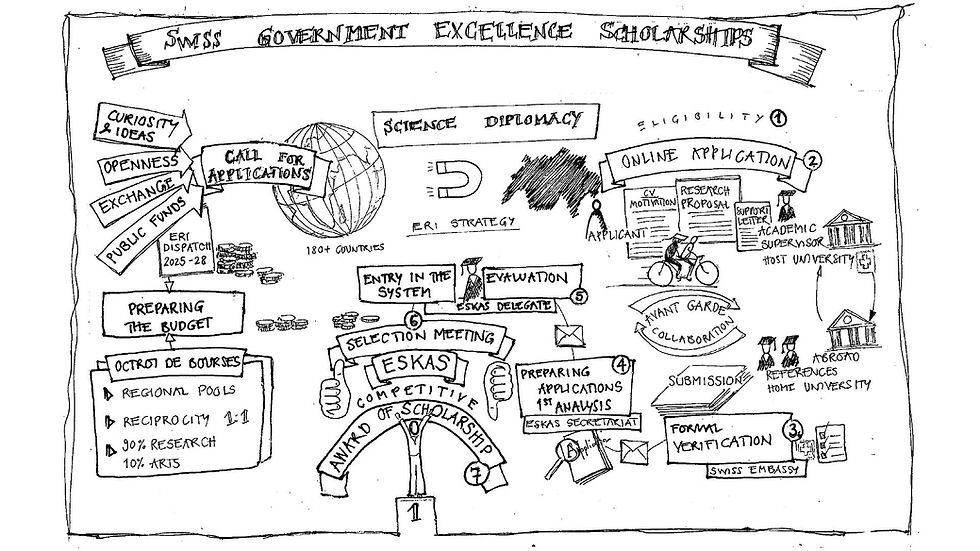 SWISS GOVERNMENT EXCELLENCE SCHOLARSHIPS
CURIOSITY
& IDEAS
OPENNESS
EXCHANGE
PUBLIC FUNDS
CALL FOR
APPLICATIONS
ERI
DISPATCH
2025-28
PREPARING
THE BUDGET
OCTROT DE BOURSES
REGIONAL POOLS
RECIPROCITY 1:1
90% RESEARCH
10% ARTS
SCIENCE DIPLOMACY
180+ COUNTRIES
ERI STRATEGY
ELIGIBILITY 1
ONLINE APPLICATION 2
APPLICANT
CV
MOTIVATION
RESEARCH
PROPOSAL
SUPPORT
LETTER
ACADEMIC
SUPERVISOR
HOST UNIVERSITY
AVANT GARDE
COLLABORATION
ABROAD
REFERENCES
HOME UNIVERSITY
SUBMISSION
FORMAL
VERIFICATION
3
SWISS EMBASSY
4
PREPARING
APPLICATIONS
1ST ANALYSIS
ESKAS SECRETARIAT
A
Applicatio
ENTRY IN THE
SYSTEM
EVALUATION
5
ESKAS DELEGATE
6
SELECTION MEETING
ESKAS
COMPETITIVE
AWARD OF SCHOLARSHIP
7
1